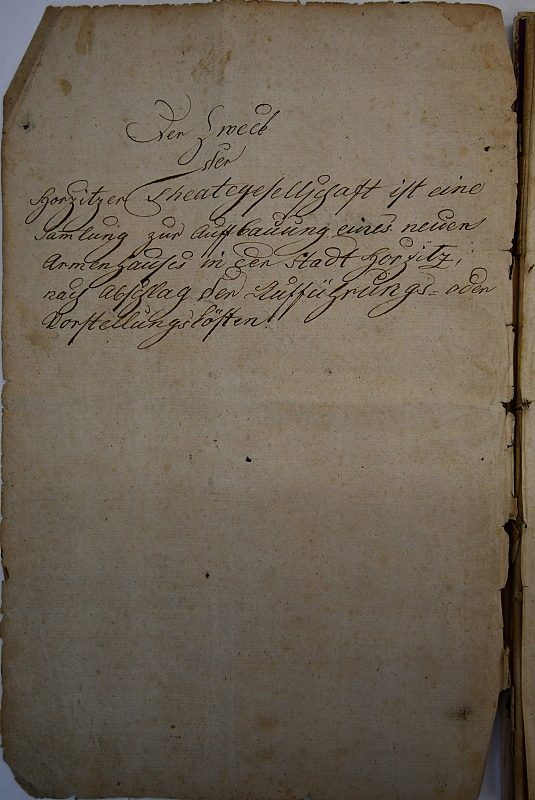 Der Zweck
der
Horzitzer Theategesellschaft ist eine
Samlung zur Aufbauung eines neuen
Armenhauses in der Stadt Horzitz,
nach Abschlag der Aufführungs- oder
Vorstellungskösten.